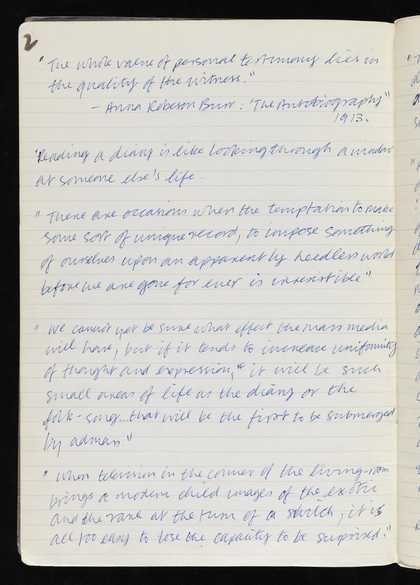 2
"The whole value of personal testimony lies in
the quality of the witness."
– Anna Robeson Burr: 'The Autobiography"
1913.
'Reading a diary is like looking through a window
at someone else's life.
"There are occasions when the temptation to make
some sort of unique record, to impose something
of ourselves upon an apparently heedless world
before we are gone for ever is irresistible"
"We cannot yet be sure what effect the mass media
will have, but if it tends to increase uniformity
of thought and expression, it will be such
small areas of life as the diary or the
folk-song...that will be the first to be submerged
by admass"
"When television in the corner of the living-room
brings a modern child images of the exotic
and the rare at the turn of a switch, it is
all too easy to lose the capacity to be surprised."